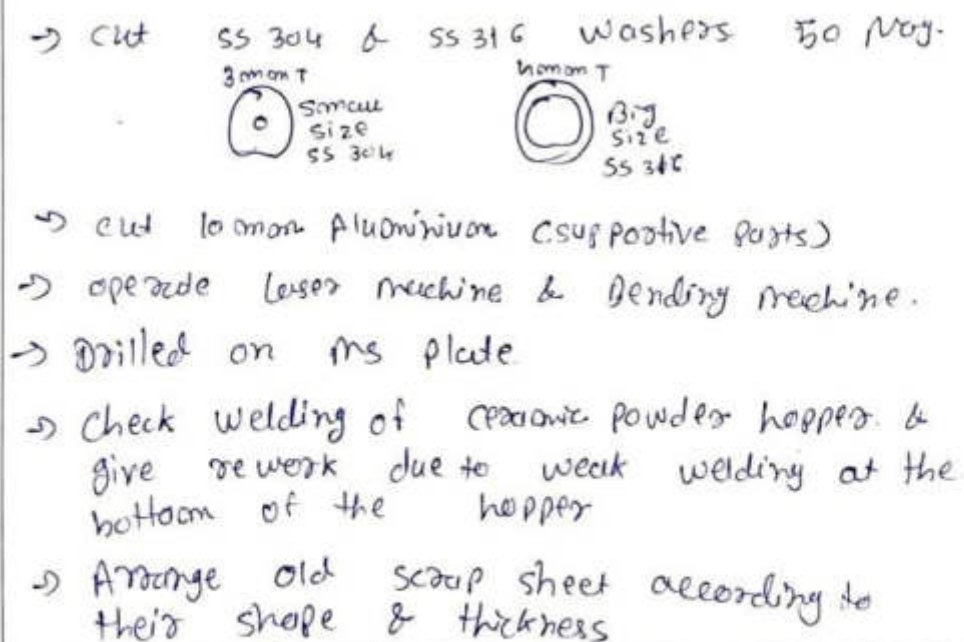 → Cut SS 304 & SS 316 Washers 50 Nos.
3mm T
Small
Size
SS 304
4mm T
Big
Size
SS 316
→ cut 10 mm Aluminium (supportive parts)
→ operate laser machine & Bending machine.
→ Drilled on ms plate
→ Check welding of ceramic powder hopper. &
give rework due to weak welding at the
bottom of the hopper
→ Arrange old scrap sheet according to
their shape & thickness